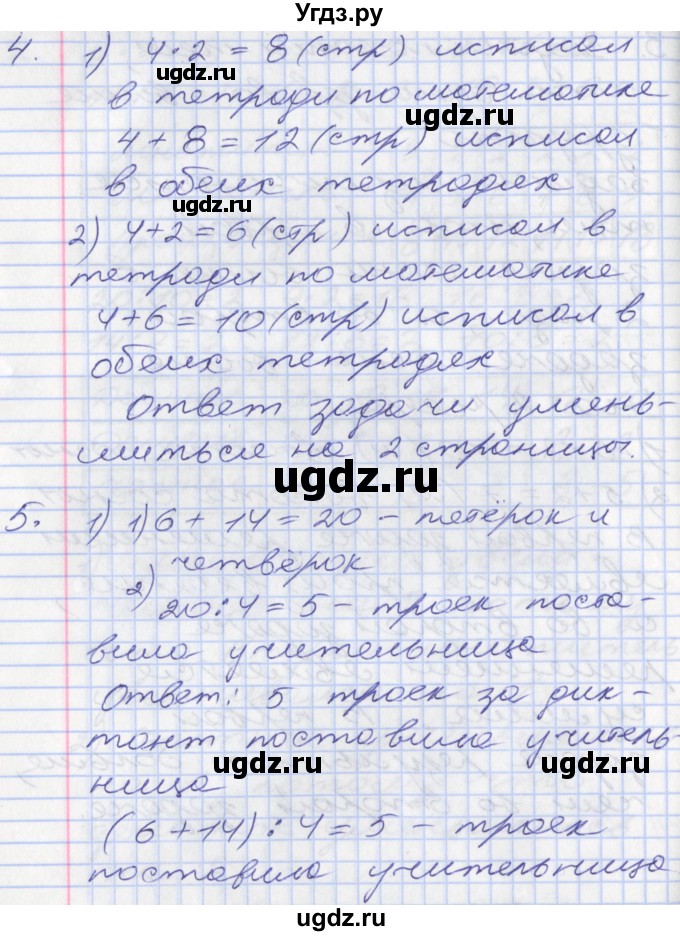 Угдз.ру
4. 1) 4·2 = 8 (стр) исписал
ugdz.ru
в тетради по математике
ugdz.ru
4 + 8 = 12 (стр) исписал
в обеих тетрадях
ugdz.ru
2) 4+2 = 6 (стр) исписал в
тетради по математике
4+6 = 10 (стр) исписал в
обеих тетрадях
Ответ задачи умень-
шиться на 2 страницы.
ugdz.ru
5. 1) 1) 6 + 14 = 20 – пятёрок и
четвёрок
2) 20:4 = 5 – троек поста-
ugdz.ru
вила учительница
Ответ: 5 троек за дик-
тант поставила учитель-
ugdz.ru
ugdz.ru
ница
(6 + 14) : 4 = 5 – троек
поставила учительница
ugdz.ru